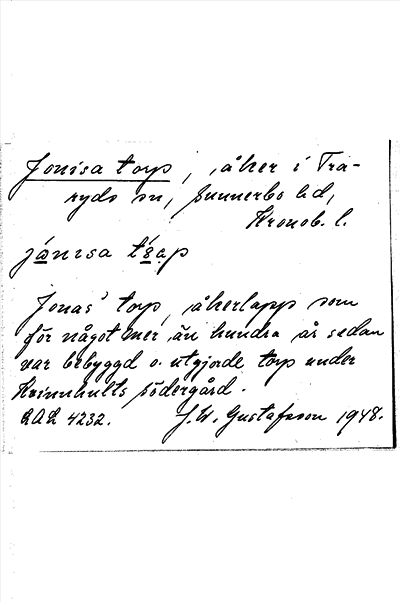 Jonisa torp, åker i Tra-
ryds sn, Sunnerbo hd,
Kronob. l.
jȯ́nısa tȯ́ap
Jonas' torp, åkerlapp som
för något mer än hundra år sedan
var bebyggd o. utgjorde torp under
Kvinnhults södergård.
LAL 4232. J. W. Gustafsson 1948.